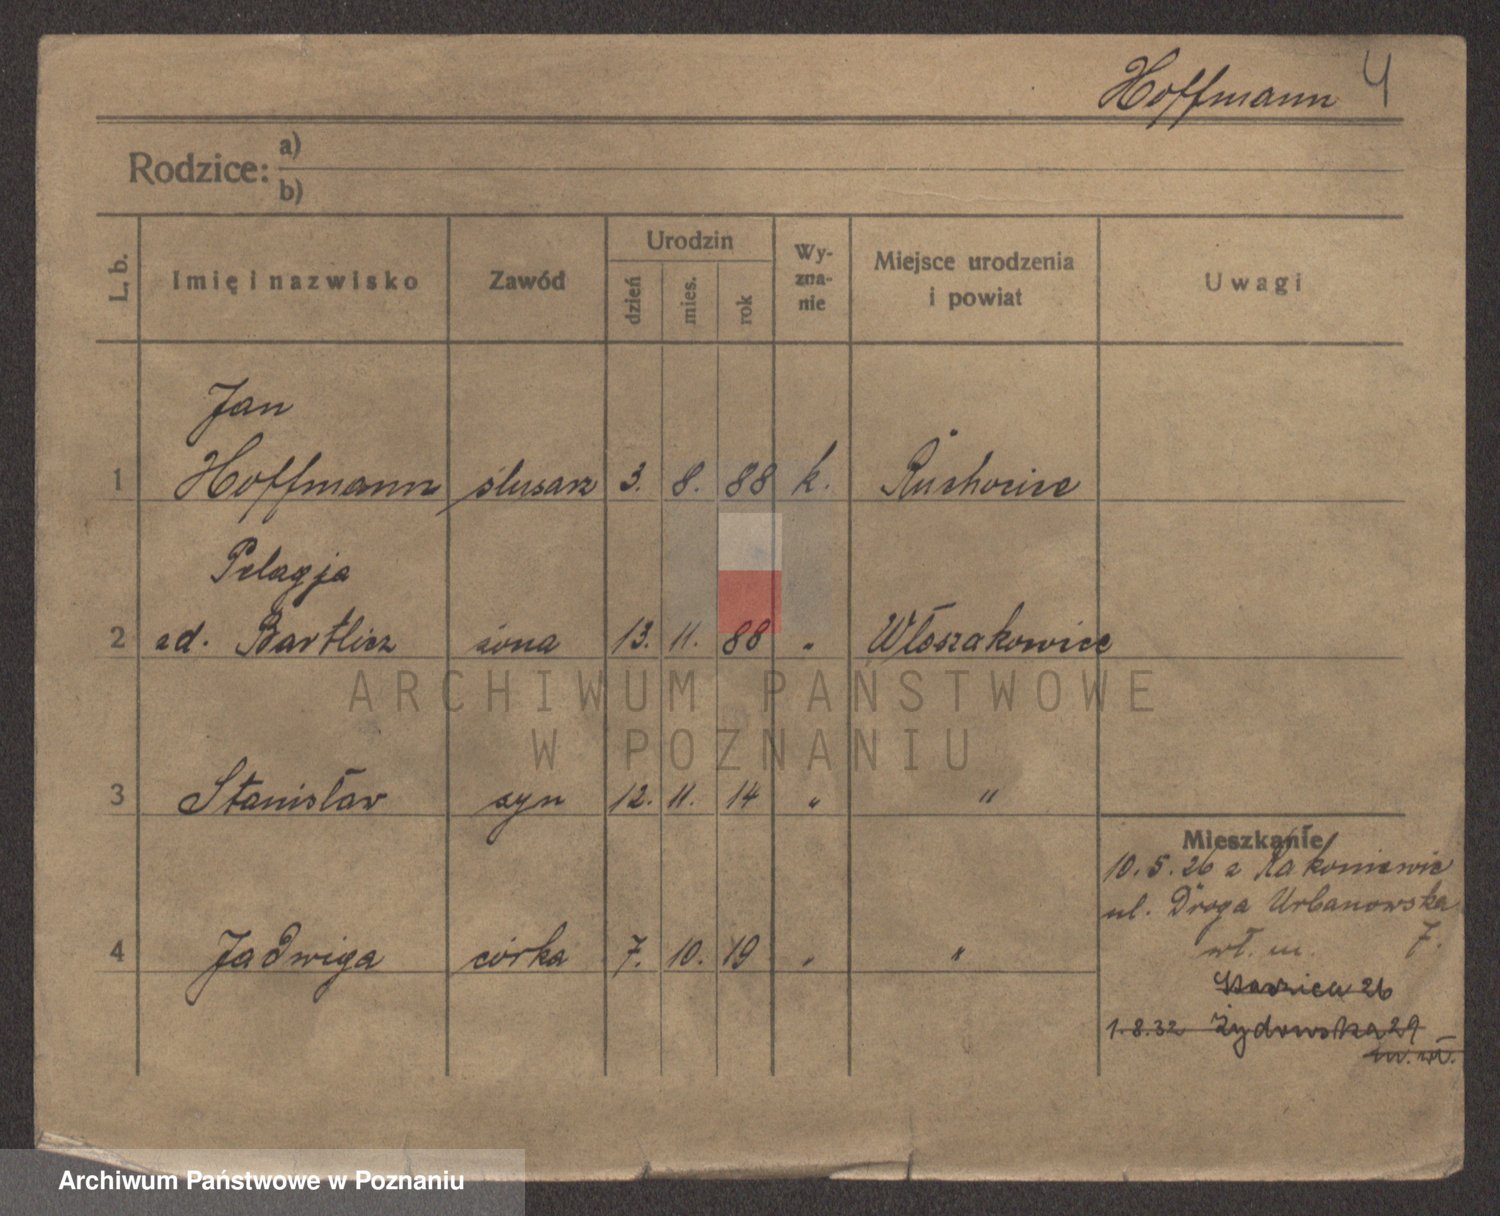 Hoffmann 4
Rodzice: a)
b)
L. b. Imię i nazwisko Zawód Urodzin dzień mies. rok Wyzna-nie Miejsce urodzenia i powiat Uwagi
Jan
1 Hoffmann ślusarz 3. 8. 88 k. Ruchocice
Pelagja
2 zd. Bartlicz żona 13. 11. 88 " Włoszakowice
3 Stanisław syn 12. 11. 14 " "
4 Jadwiga córka 7. 10. 19 " "
Mieszkanie
10. 5. 26 z Rakoniewic
ul. Droga Urbanowska
wł. m. 7.
Staszica 26
1.8.32 Żydowska 29
m. wł.
ARCHIWUM PAŃSTWOWE
W POZNANIU
Archiwum Państwowe w Poznaniu